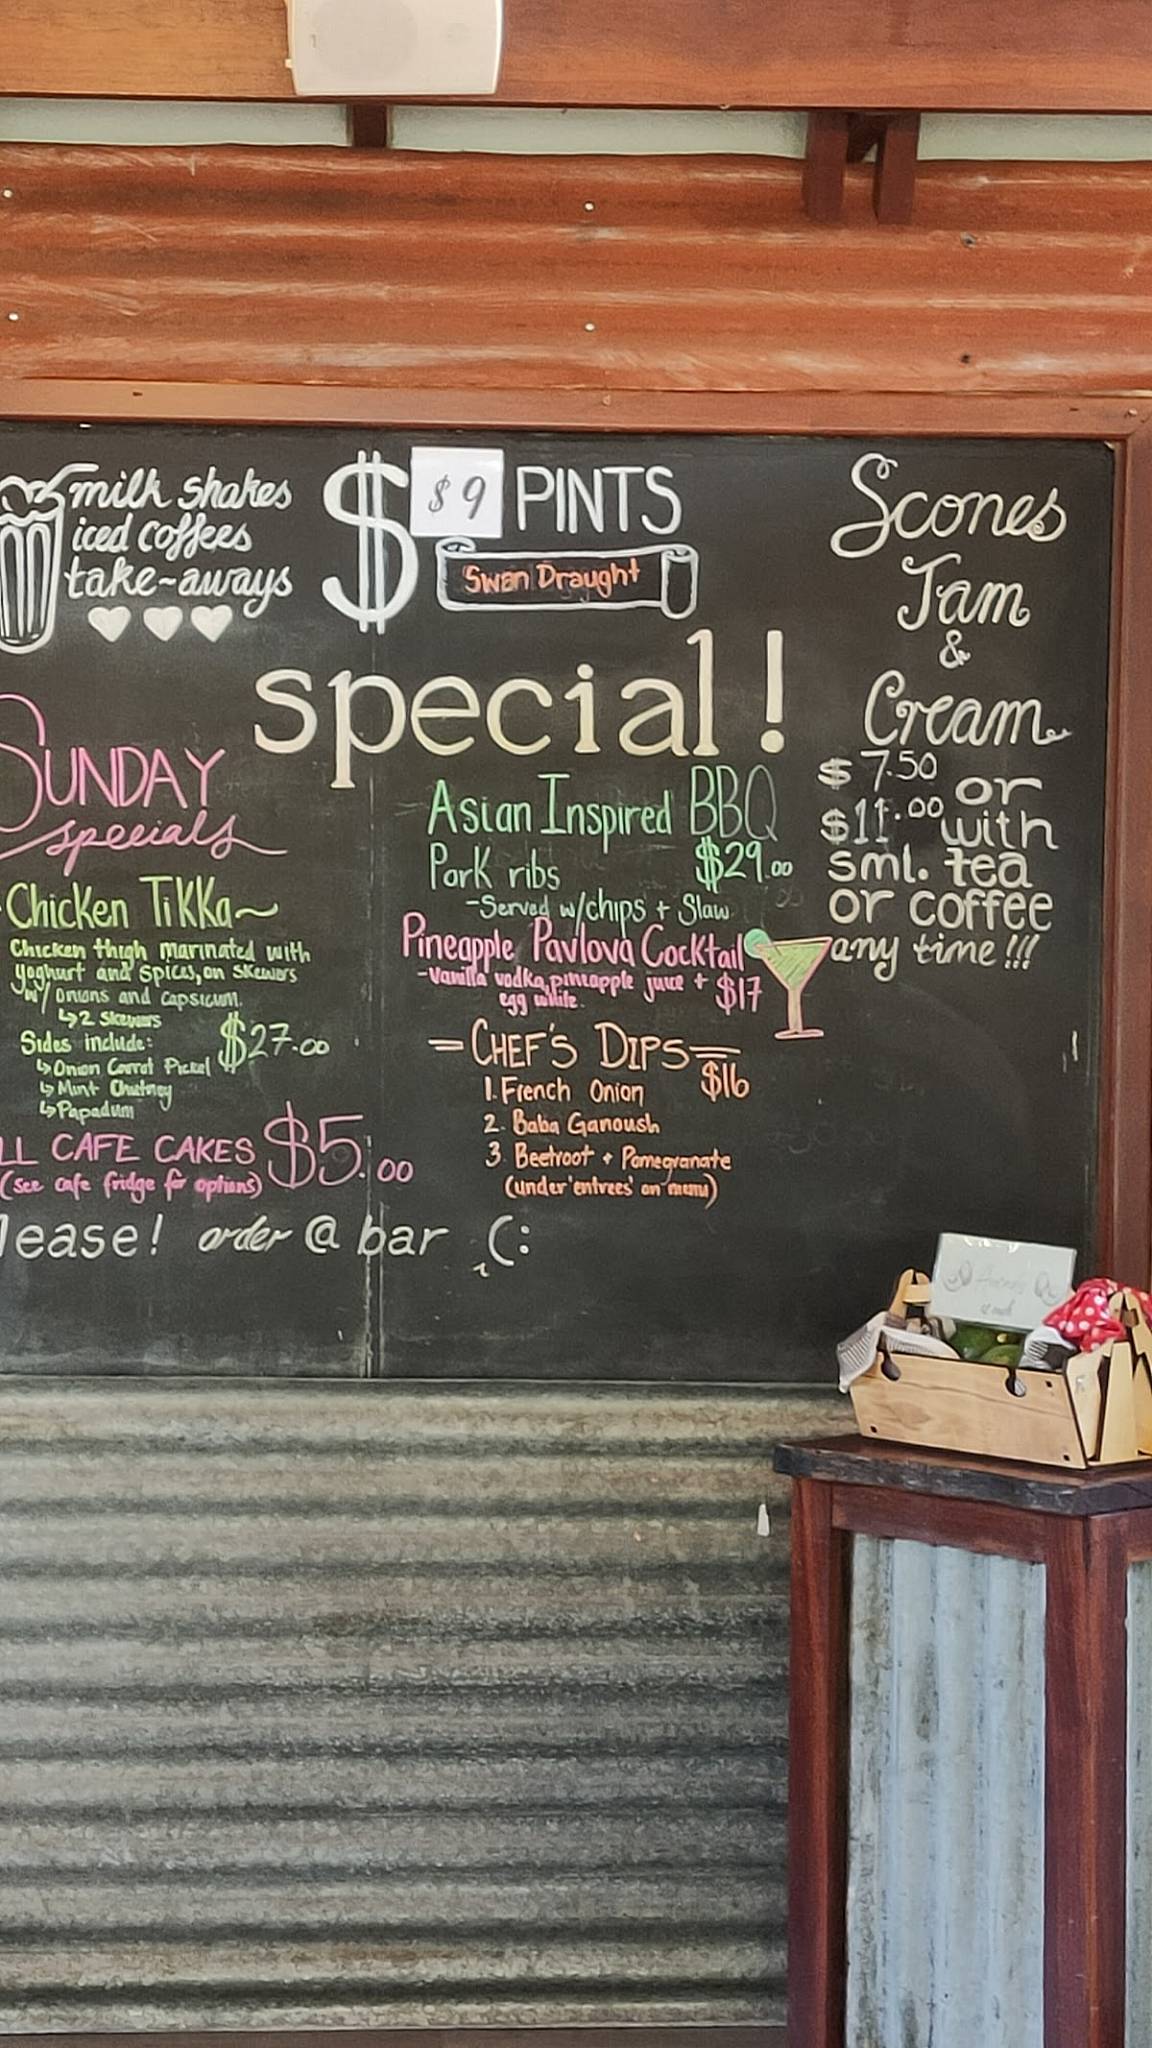 milk shakes
iced coffees
take-aways
$ $9 PINTS
Swan Draught
special!
SUNDAY
specials
Chicken TiKKa~
Chicken thigh marinated with
yoghurt and spices, on skewers
w/ onions and capsicum.
↳2 skewers
Sides include:
$27.00
↳Onion Carrot Pickel
↳Mint Chutney
↳Papadum
LL CAFE CAKES $5.00
(see cafe fridge for options)
lease! order @ bar (:
Asian Inspired BBQ
Pork ribs $29.00
-Served w/chips + Slaw
Pineapple Pavlova Cocktail
-Vanilla vodka, pineapple juice +
egg white. $17
=CHEF'S DIPS=
$16
1. French Onion
2. Baba Ganoush
3. Beetroot + Pomegranate
(under 'entrees' on menu)
Scones
Jam
&
Cream
$7.50 or
$11.00 with
sml. tea
or coffee
any time!!!